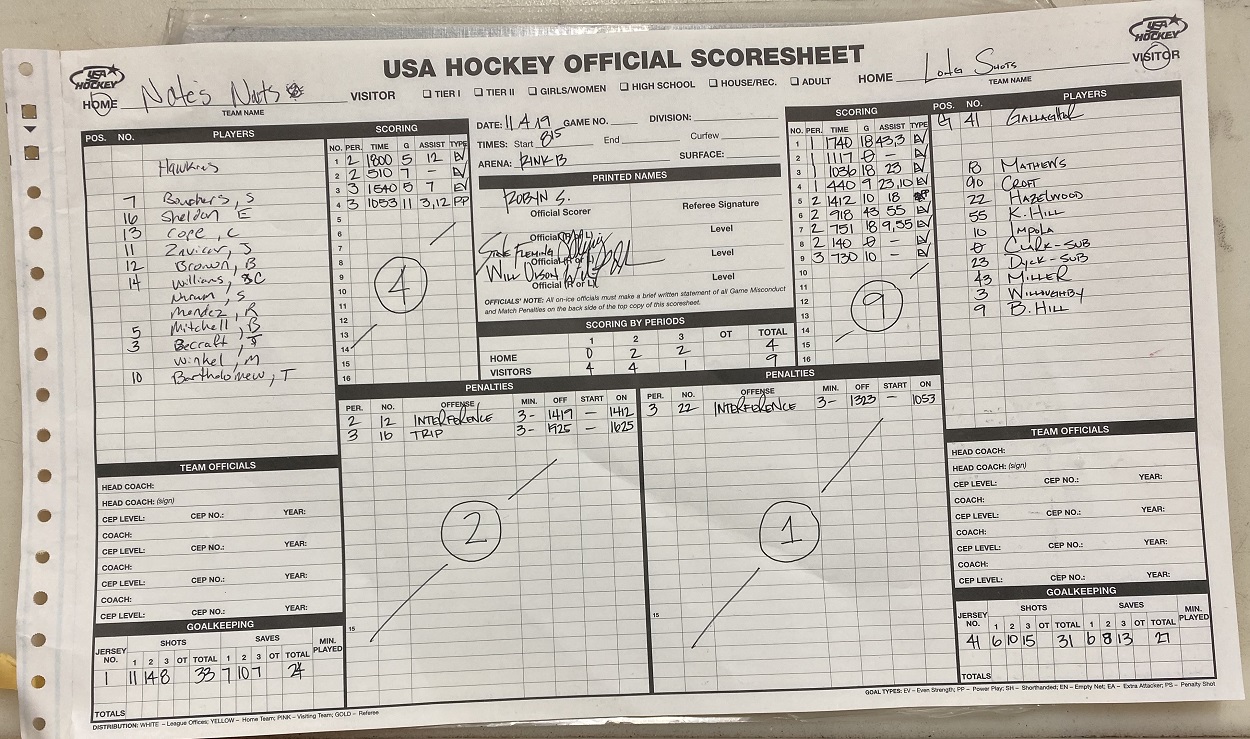 USA HOCKEY OFFICIAL SCORESHEET
USA HOCKEY
HOME Nates Nuts VISITOR
TEAM NAME
☐ TIER I ☐ TIER II ☐ GIRLS/WOMEN ☐ HIGH SCHOOL ☐ HOUSE/REC. ☐ ADULT
HOME Long Shots VISITOR
TEAM NAME
USA HOCKEY
POS. NO. PLAYERS
Hawkins
7 Bouchers, S
16 Sheldon E
13 Cope, C
11 Zavicar, J
12 Brown, B
14 Williams, C
Nurum, S
Mendez, R
5 Mitchell, B
3 Becraft, J
Winkel, M
10 Bartholomew, T
SCORING
NO. PER. TIME G ASSIST TYPE
1 2 1800 5 12 EV
2 2 510 7 - EV
3 3 1540 5 7 EV
4 3 1053 11 3,12 PP
5
6
7
8
9
10
11
12
13
14
15
16
4
DATE: 11.4.19 GAME NO. DIVISION:
TIMES: Start 815 End Curfew
ARENA: RINK B SURFACE:
PRINTED NAMES
ROBYN S.
Official Scorer Referee Signature
Official (R or L) Level
STEVE FLEMING
Official (R or L) Level
WILL OLSON
Official (R or L) Level
OFFICIALS' NOTE: All on-ice officials must make a brief written statement of all Game Misconduct
and Match Penalties on the back side of the top copy of this scoresheet.
SCORING BY PERIODS
1 2 3 OT TOTAL
HOME 0 2 2 4
VISITORS 4 4 1 9
SCORING
NO. PER. TIME G ASSIST TYPE
1 1 1740 18 43,3 EV
2 1 1117 0 - EV
3 1 1036 18 23 EV
4 1 440 9 23,10 EV
5 2 1412 10 18
6 2 918 43 55 EV
7 2 751 18 9,55 EV
8 2 140 0 - EV
9 3 730 10 - EV
10
11
12
13
14
15
16
9
POS. NO. PLAYERS
G 41 GALLAGHER
18 MATHEWS
90 CROFT
22 HAZELWOOD
55 K. HILL
10 IMPOLA
0 CURK-SUB
23 DYCK-SUB
43 MILLER
3 WILLAUGHBY
9 B. HILL
PENALTIES
PER. NO. OFFENSE MIN. OFF START ON
2 12 INTERFERENCE 3- 1419 - 1412
3 16 TRIP 3- 1925 - 1625
2
15
PENALTIES
PER. NO. OFFENSE MIN. OFF START ON
3 22 INTERFERENCE 3- 1323 - 1053
1
15
TEAM OFFICIALS
HEAD COACH:
HEAD COACH: (sign)
CEP LEVEL: CEP NO.: YEAR:
COACH:
CEP LEVEL: CEP NO.: YEAR:
COACH:
CEP LEVEL: CEP NO.: YEAR:
COACH:
CEP LEVEL: CEP NO.: YEAR:
GOALKEEPING
JERSEY NO. SHOTS SAVES MIN. PLAYED
1 2 3 OT TOTAL 1 2 3 OT TOTAL
1 11 14 8 33 7 10 7 24
TOTALS
TEAM OFFICIALS
HEAD COACH:
HEAD COACH: (sign)
CEP LEVEL: CEP NO.: YEAR:
COACH:
CEP LEVEL: CEP NO.: YEAR:
COACH:
CEP LEVEL: CEP NO.: YEAR:
COACH:
CEP LEVEL: CEP NO.: YEAR:
GOALKEEPING
JERSEY NO. SHOTS SAVES MIN. PLAYED
1 2 3 OT TOTAL 1 2 3 OT TOTAL
41 6 10 15 31 6 8 13 27
TOTALS
DISTRIBUTION: WHITE – League Offices; YELLOW – Home Team; PINK – Visiting Team; GOLD – Referee
GOAL TYPES: EV – Even Strength; PP – Power Play; SH – Shorthanded; EN – Empty Net; EA – Extra Attacker; PS – Penalty Shot